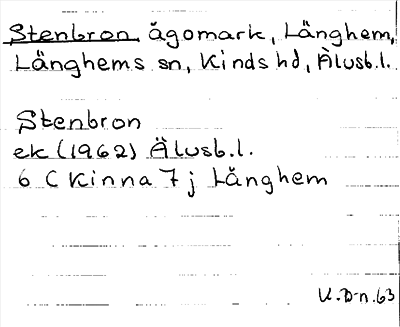 Stenbron ägomark, Länghem,
Länghems sn, Kinds hd, Älvsb.l.
Stenbron
ek (1962) Älvsb.l.
6 C Kinna 7 j Länghem
U.D-n.63